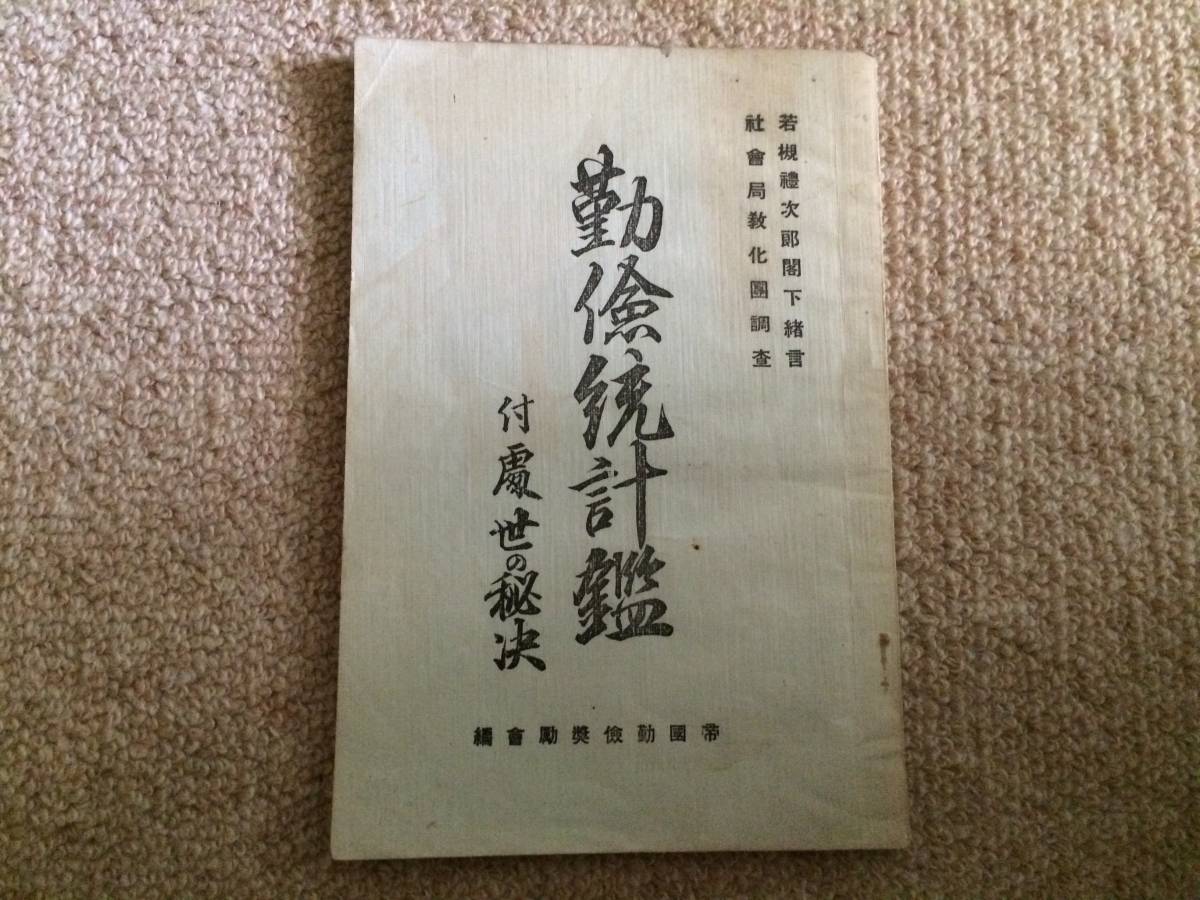 若槻禮次郎閣下緒言
社會局教化團調査
勤倹統計鑑
付處世の秘决
帝國勤儉奬勵會編